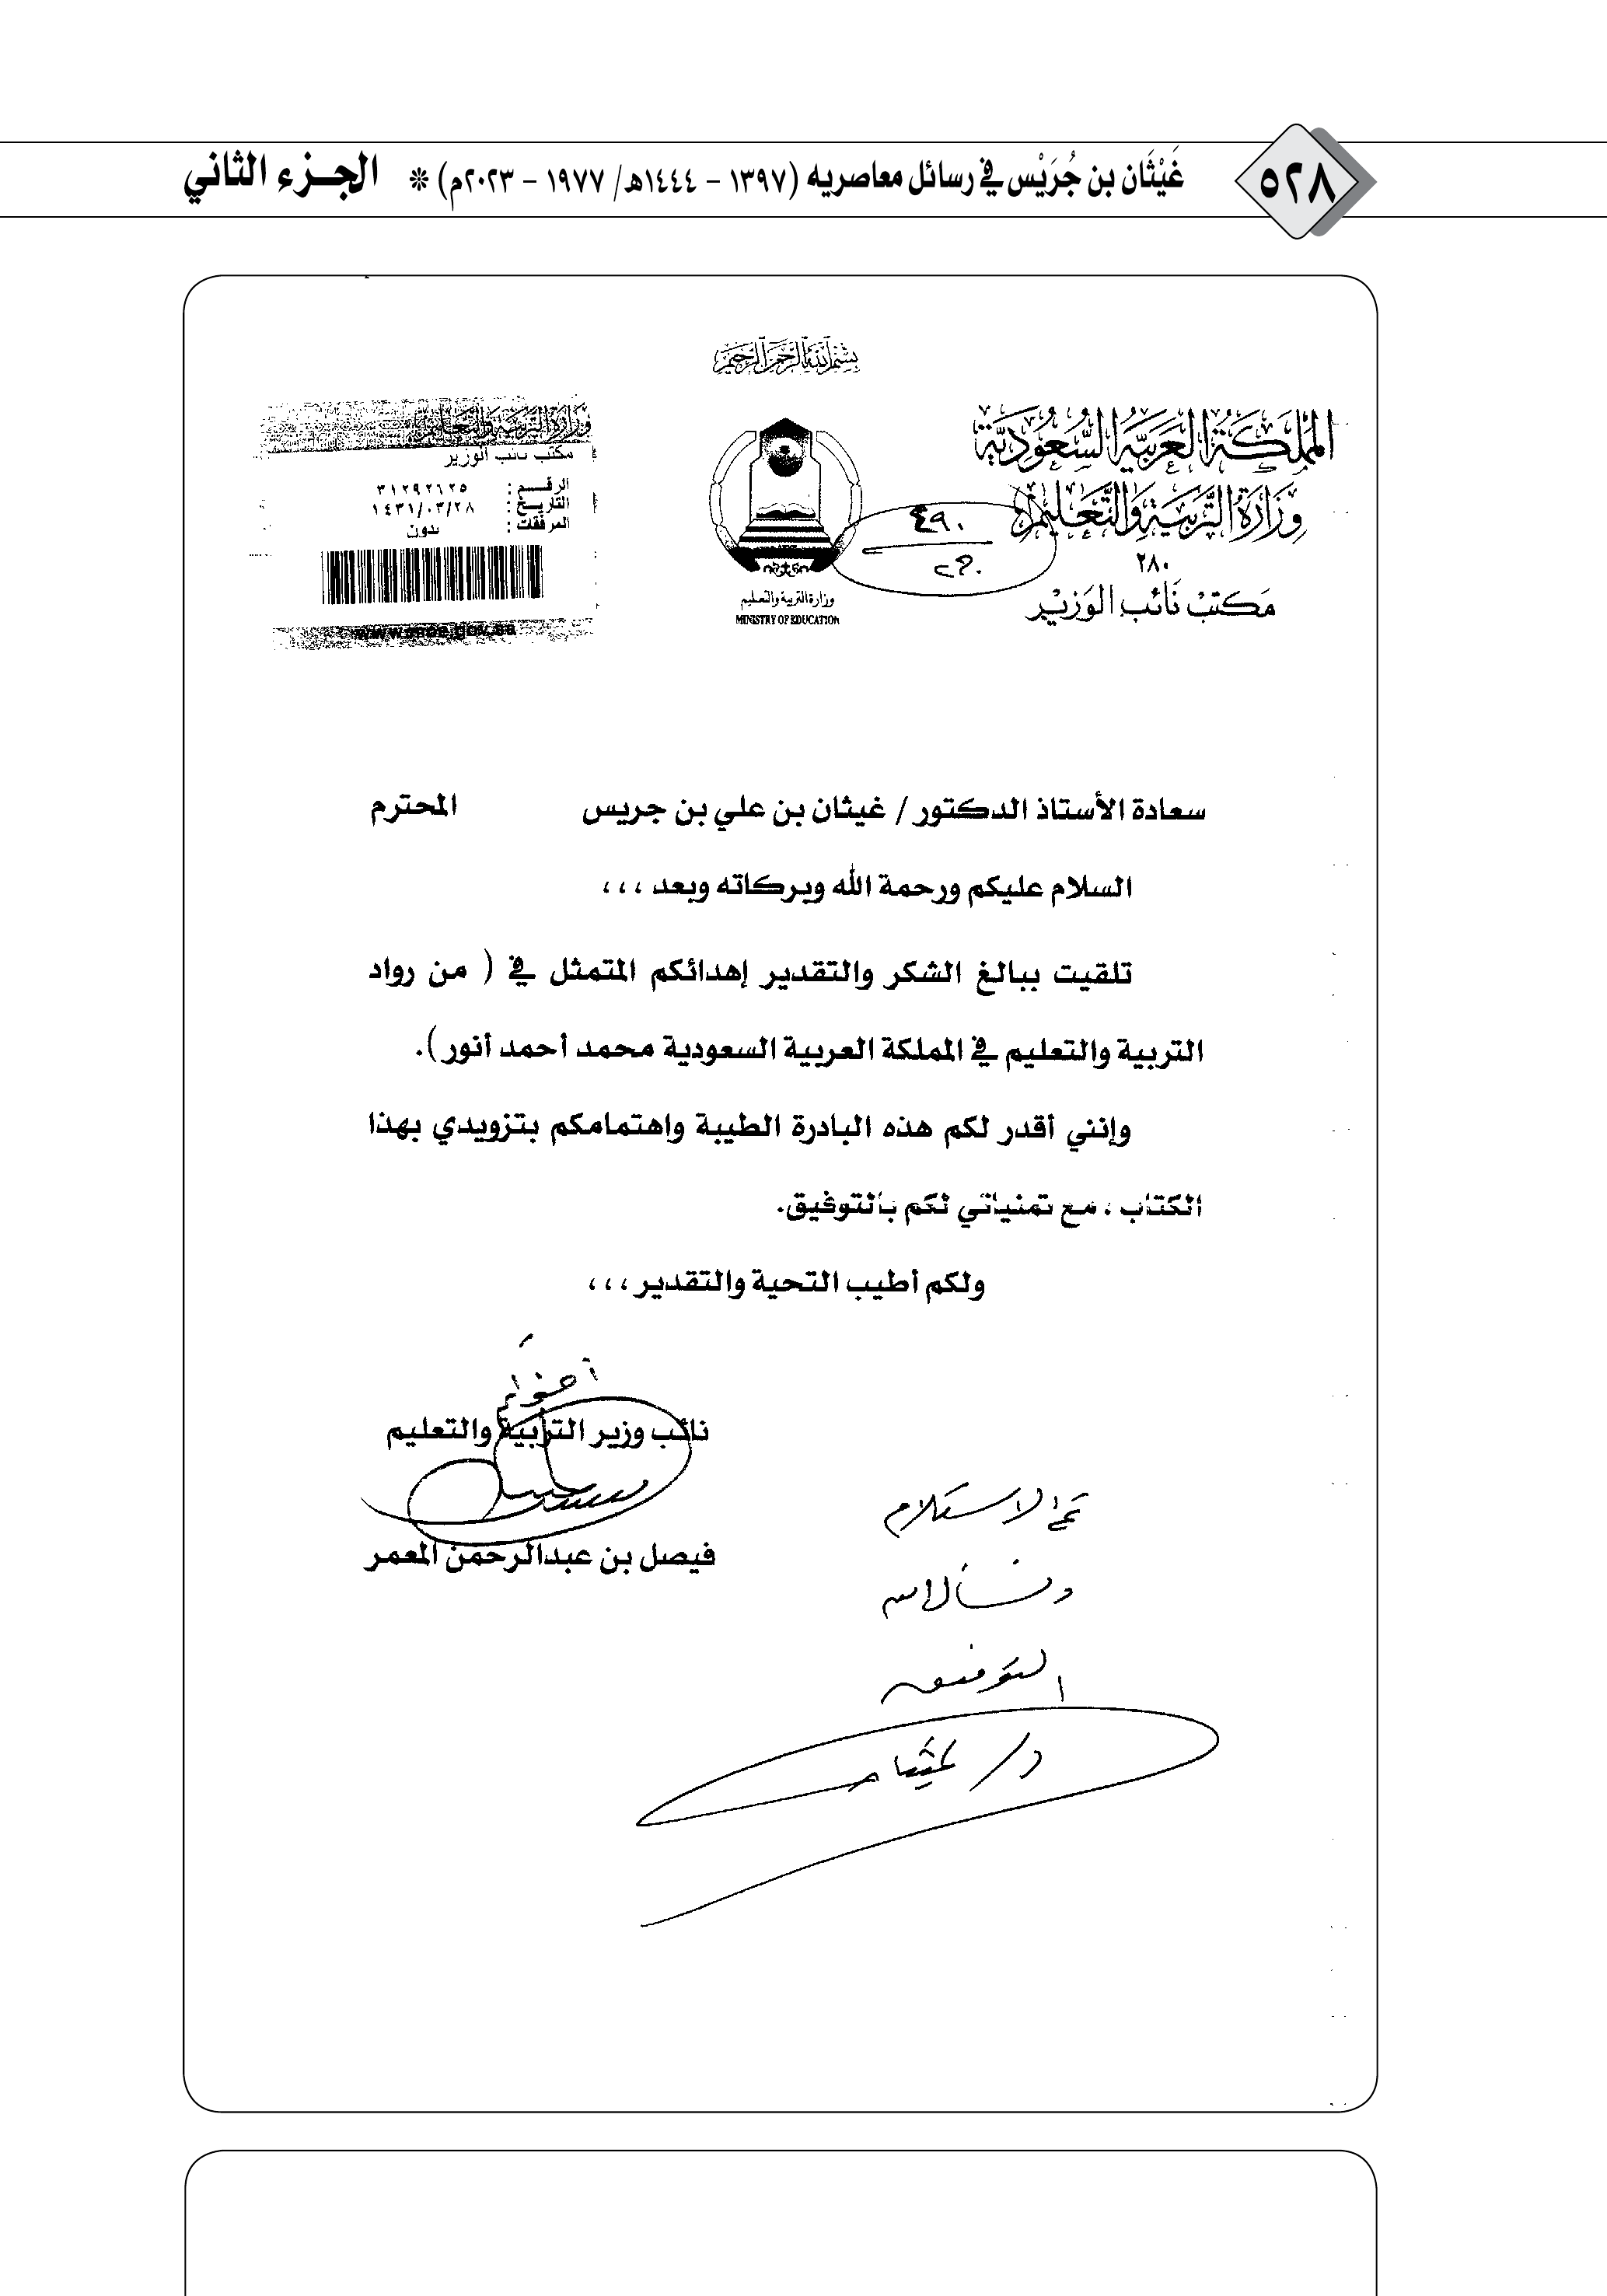 ٥٢٨
غَيْثَان بن جُرَيْس في رسائل معاصريه (١٣٩٧ - ١٤٤٤هـ/ ١٩٧٧ - ٢٠٢٣م) * الجـزء الثاني
بسم الله الرحمن الرحيم
المملكة العربية السعودية
وزارة التربية والتعليم
٢٨٠
مكتب نائب الوزير
٤٩٠
وزارة التربية والتعليم
MINISTRY OF EDUCATION
وزارة التربية والتعليم
مكتب نائب الوزير
الرقـــم : ٣١٢٩٢٦٢٥
التاريـخ : ١٤٣١/٠٣/٢٨
المرفقات : بدون
www.moe.gov.sa
سعادة الأستاذ الدكتور / غيثان بن علي بن جريس المحترم
السلام عليكم ورحمة الله وبركاته وبعد ،،،
تلقيت ببالغ الشكر والتقدير إهدائكم المتمثل في ( من رواد
التربية والتعليم في المملكة العربية السعودية محمد أحمد أنور ).
وإنني أقدر لكم هذه البادرة الطيبة واهتمامكم بتزويدي بهذا
الكتاب ، مع تمنياتي لكم بالتوفيق.
ولكم أطيب التحية والتقدير ،،،
أخوكم
نائب وزير التربية والتعليم
فيصل بن عبدالرحمن المعمر
تم الاستلام
ونسأل الله
التوفيق
د/ غيثان